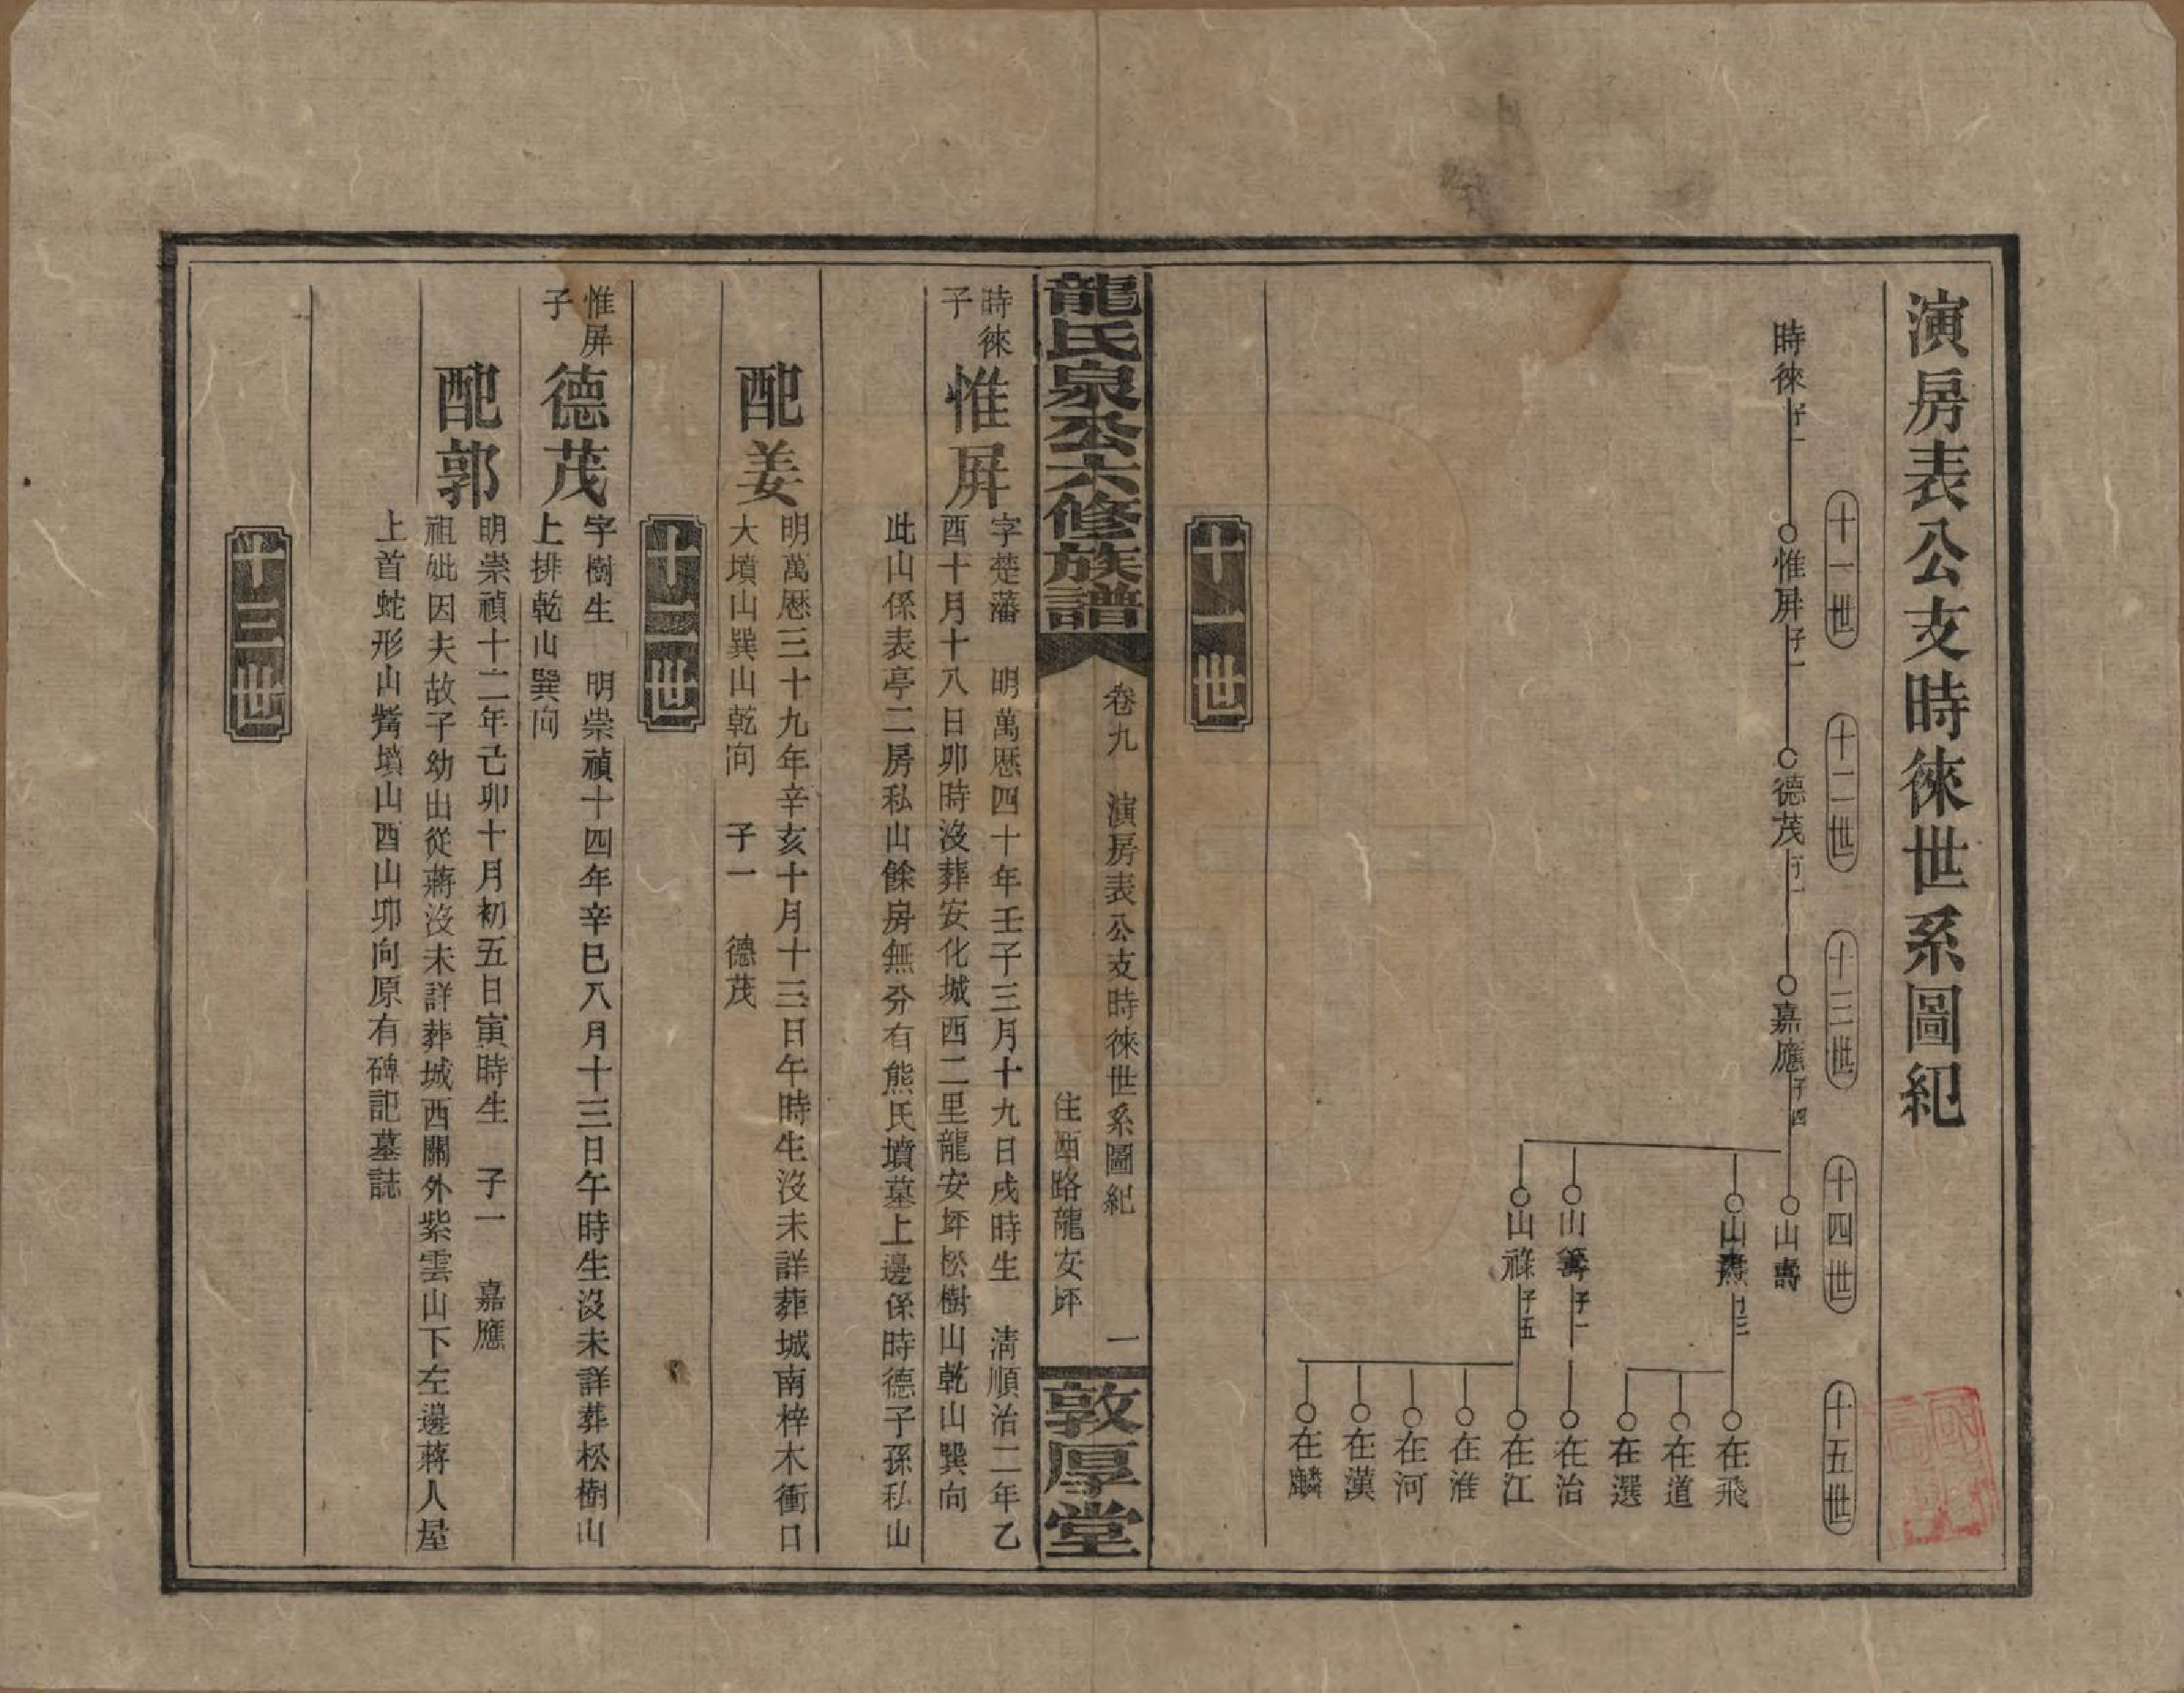 演房表公支時徠世系圖紀
十一世
十二世
十三世
十四世
十五世
時徠子一
惟屏子一
德茂子一
嘉應子四
山壽
山燾子三
山籌子一
山祿子五
在飛
在道
在選
在治
在江
在淮
在河
在漢
在麟
十一世
龍氏泉公六修族譜
卷九 演房表公支時徠世系圖紀 一
住西路龍安坪
敦厚堂
時徠子 惟屏
字楚藩 明萬歷四十年壬子三月十九日戌時生 清順治二年乙
酉十月十八日卯時沒葬安化城西二里龍安坪松樹山乾山巽向
此山係表亭二房私山餘房無分有熊氏墳墓上邊係時德子孫私山
配姜
明萬歷三十九年辛亥十月十三日午時生沒未詳葬城南梓木衝口
大墳山巽山乾向 子一 德茂
十二世
惟屏子 德茂
字樹生 明崇禎十四年辛巳八月十三日午時生沒未詳葬松樹山
上排乾山巽向
配郭
明崇禎十二年己卯十月初五日寅時生 子一 嘉應
祖妣因夫故子幼出從蔣沒未詳葬城西關外紫雲山下左邊蔣人屋
上首蛇形山觜墳山酉山卯向原有碑記墓誌
十三世